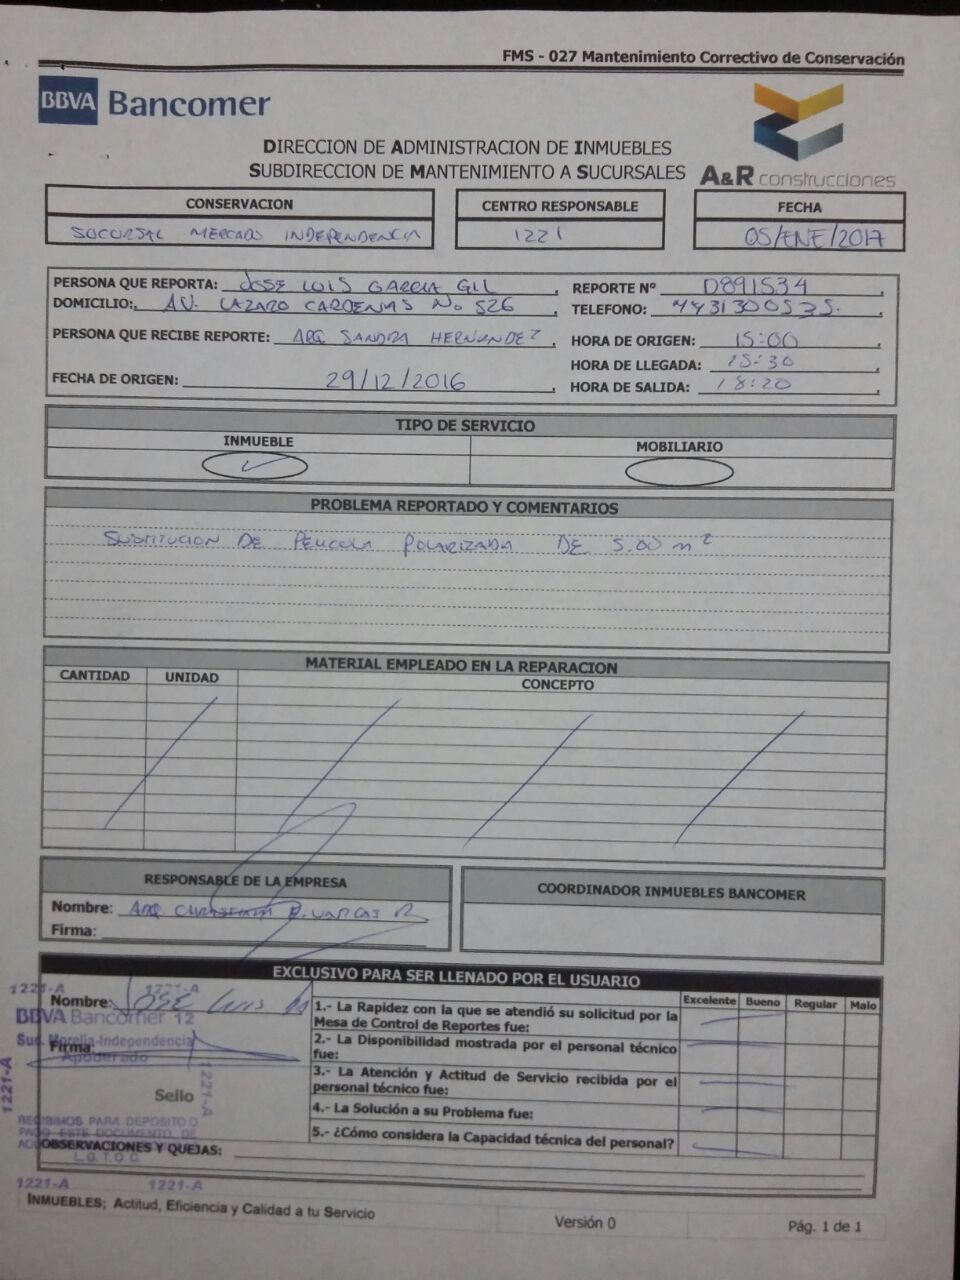 FMS - 027 Mantenimiento Correctivo de Conservación
BBVA Bancomer
DIRECCION DE ADMINISTRACION DE INMUEBLES
SUBDIRECCION DE MANTENIMIENTO A SUCURSALES
A&R construcciones
CONSERVACION
SUCURSAL MERCADO INDEPENDENCIA
CENTRO RESPONSABLE
1221
FECHA
05/ENE/2017
PERSONA QUE REPORTA: JOSE LUIS GARCIA GIL
REPORTE Nº D891534
DOMICILIO:. AV. LAZARO CARDENAS No 526
TELEFONO: 4431300535.
PERSONA QUE RECIBE REPORTE: ARQ SANDRA HERNANDEZ
HORA DE ORIGEN: 15:00
HORA DE LLEGADA: 15:30
FECHA DE ORIGEN: 29/12/2016
HORA DE SALIDA: 18:20
TIPO DE SERVICIO
INMUEBLE
MOBILIARIO
PROBLEMA REPORTADO Y COMENTARIOS
SUSTITUCION DE PELICULA POLARIZADA DE 5.00 m²
MATERIAL EMPLEADO EN LA REPARACION
CANTIDAD UNIDAD CONCEPTO
RESPONSABLE DE LA EMPRESA
Nombre: ARQ. VARGAS R
Firma:
COORDINADOR INMUEBLES BANCOMER
EXCLUSIVO PARA SER LLENADO POR EL USUARIO
Excelente Bueno Regular Malo
Nombre: JOSE Luis
Firma:
Sello
1221-A 1221-A
BBVA Bancomer 12
Suc. Morelia-Independencia
Apoderado
1221-A
1221-A
RECIBIMOS PARA DEPOSITO O
PAGO ESTE DOCUMENTO, DE
L.G.T.O.C.
1221-A 1221-A
1.- La Rapidez con la que se atendió su solicitud por la Mesa de Control de Reportes fue:
2.- La Disponibilidad mostrada por el personal técnico fue:
3.- La Atención y Actitud de Servicio recibida por el personal técnico fue:
4.- La Solución a su Problema fue:
5.- ¿Cómo considera la Capacidad técnica del personal?
OBSERVACIONES Y QUEJAS:
INMUEBLES; Actitud, Eficiencia y Calidad a tu Servicio
Versión 0
Pág. 1 de 1